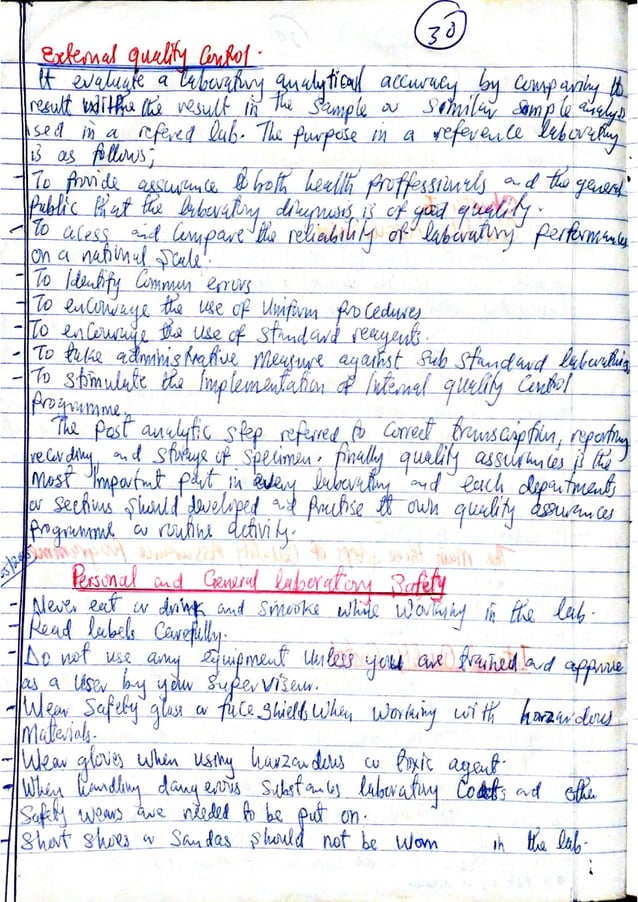 30
External quality Control.
It evaluate a laboratory analytical accuracy by comparing its
result with the result in the sample or similar sample analy
sed in a refered lab. The purpose in a reference laboratory
is as follows;
- To provide assurance to both health proffessionals and the general
public that the laboratory diagnosis is of good quality.
- To acess and compare the reliability of laboratory performances
on a national scale.
- To Identify Common errors
- To encourage the use of Uniform procedures
- To encourage the use of standard reagents.
- To take administrative measure against sub standard laboratories
- To stimulate the Implementation of Internal quality Control
programme.
The post analytic step referred to correct transcription, reporting
recording and storage of specimen. finally quality assurances is the
most Important part in every laboratory and each departments
or sections should developed and practise it own quality assurances
programme or routine activity.
Personal and General laboratory Safety
- Never eat or drink and smooke while working in the lab.
- Read labels Carefully.
- Do not use any equipment unless you are trained and approve
as a user by your superviseur.
- Wear Safety glass or face shields when working with harzandous
materials.
- Wear gloves when using harzandous or toxic agent.
- When handling dangerous substances laboratory Coats and other
safety wears are needed to be put on.
- Short shoes or Sandas should not be worn in the lab.